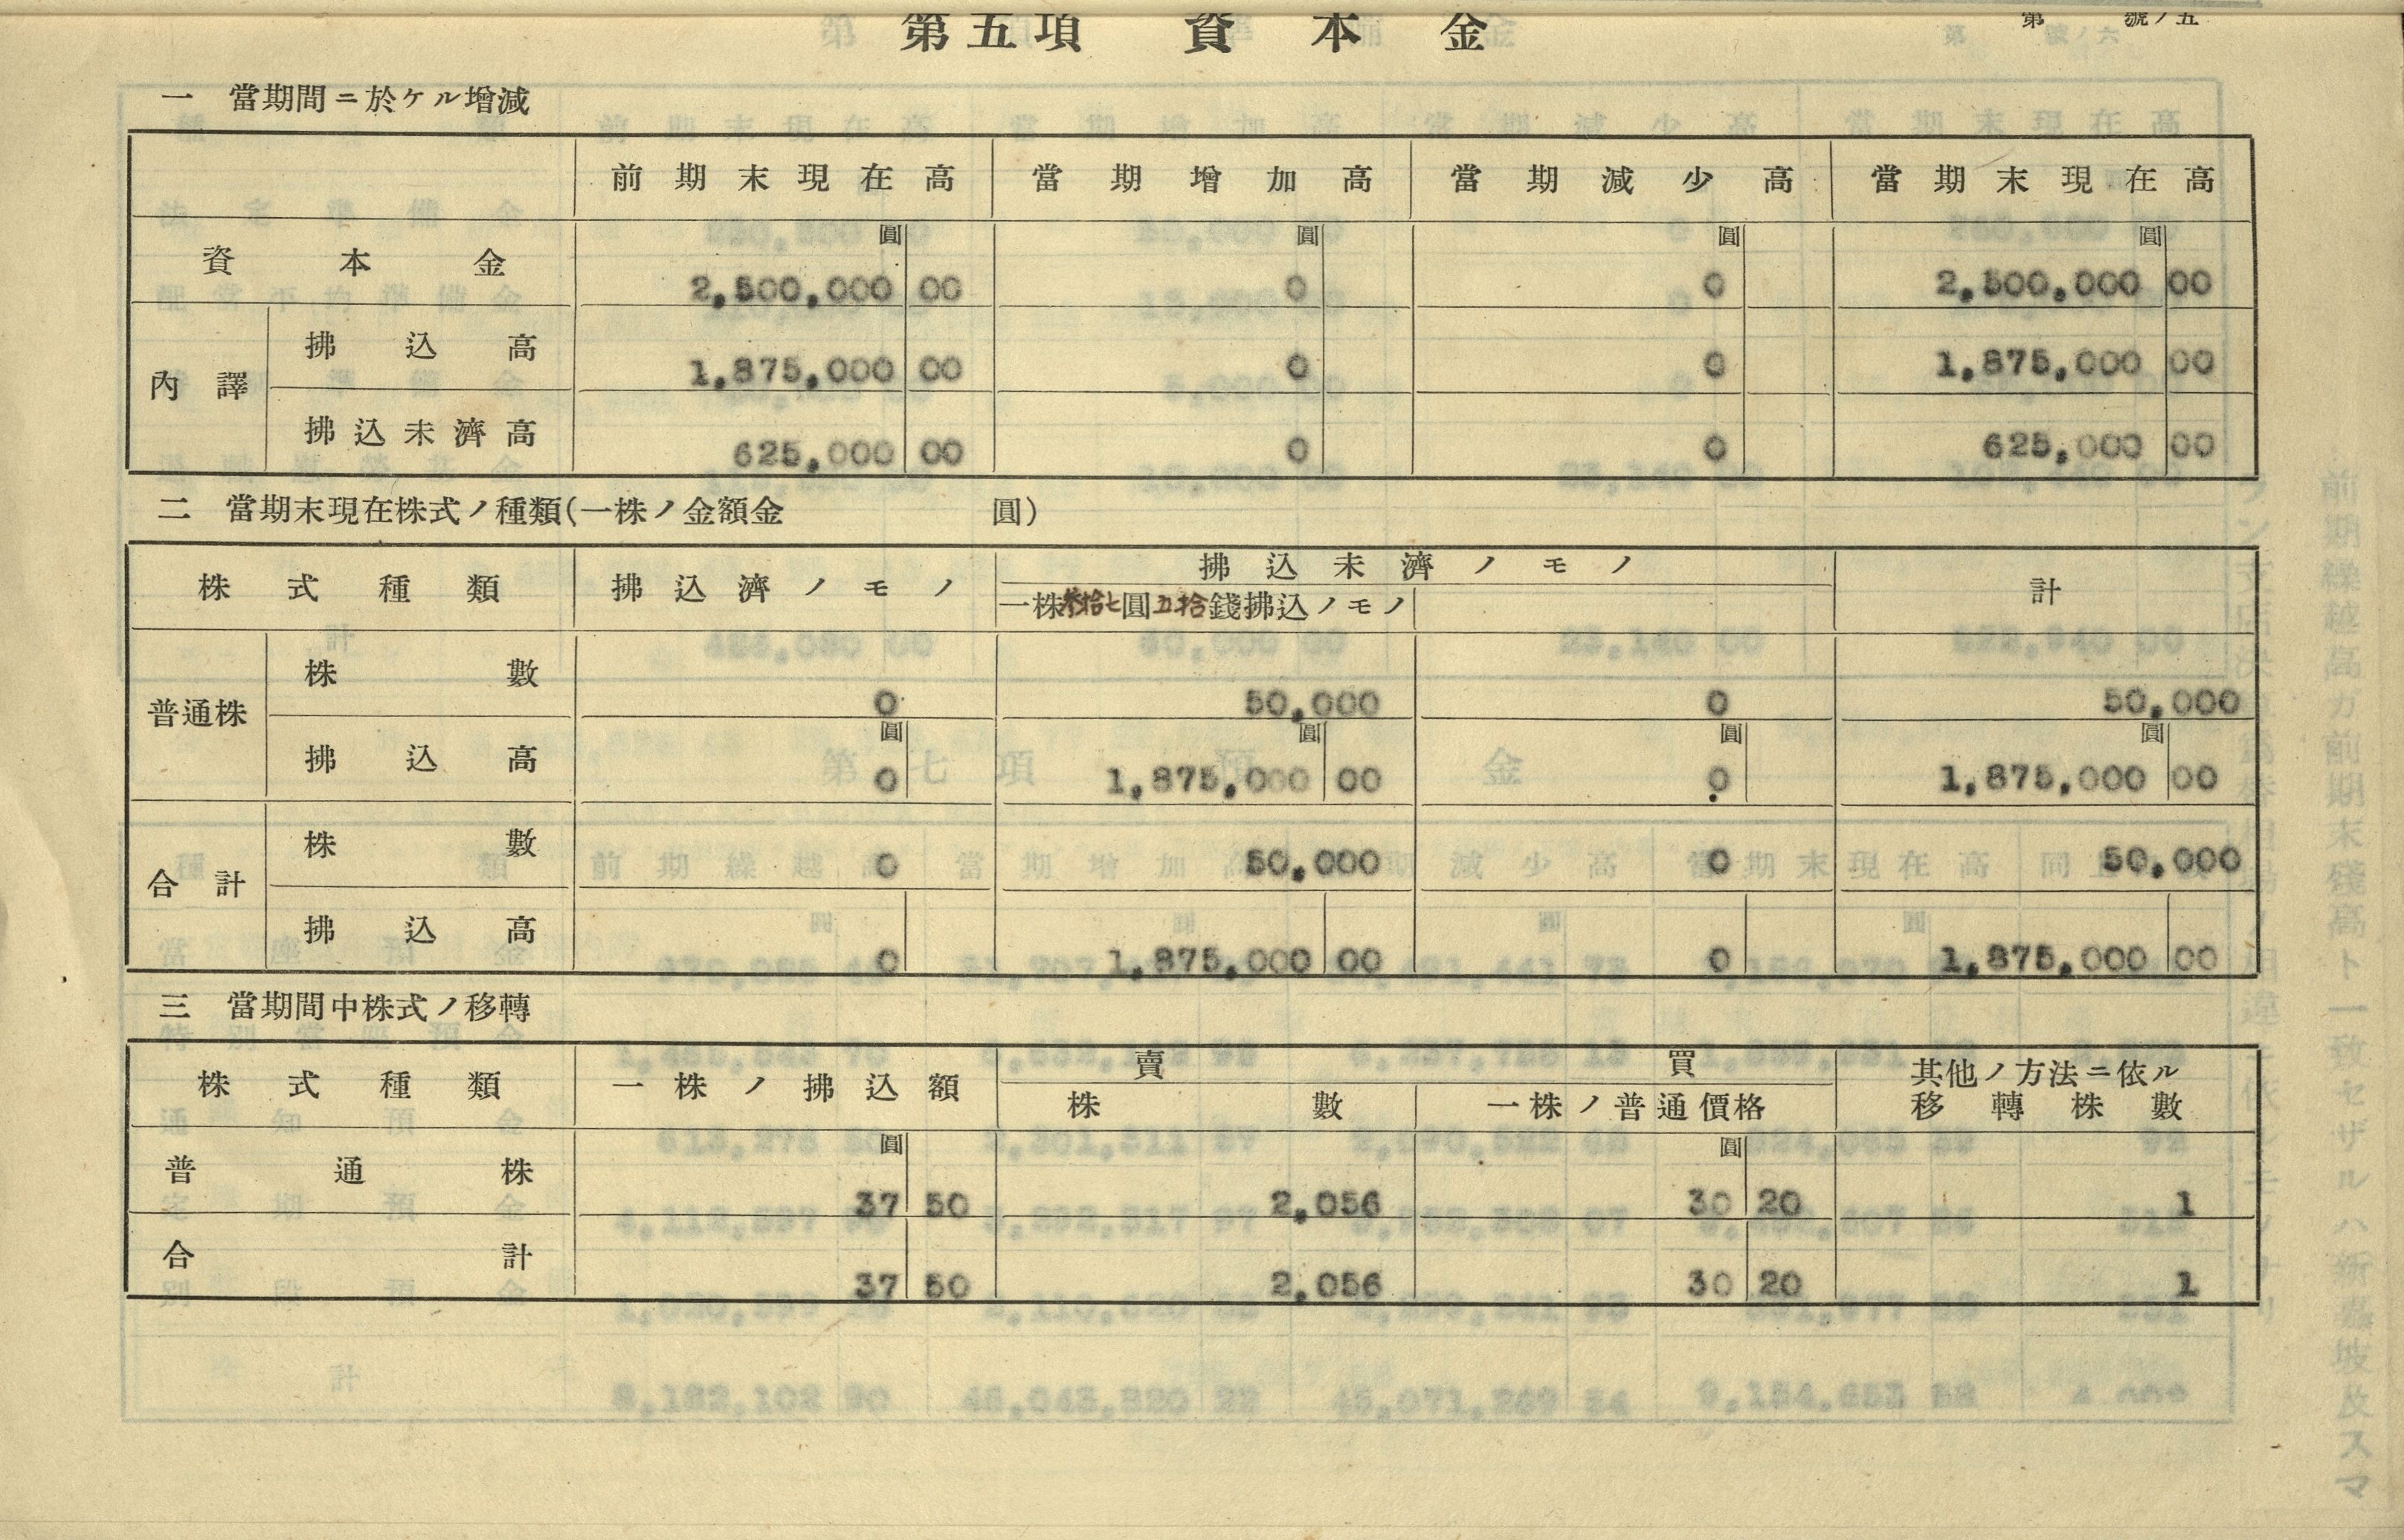 第 號ノ五
第五項 資本金
一 當期間ニ於ケル增減
前期末現在高 當期增加高 當期減少高 當期末現在高
圓 圓 圓 圓
資本金 2,500,000 00 0 0 2,500,000 00
內譯
拂込高 1,875,000 00 0 0 1,875,000 00
拂込未濟高 625,000 00 0 0 625,000 00
二 當期末現在株式ノ種類(一株ノ金額金 圓)
株式種類 拂込濟ノモノ 拂込未濟ノモノ 計
一株參拾七圓五拾錢拂込ノモノ
普通株
株數 0 50,000 0 50,000
圓 圓 圓 圓
拂込高 0 1,875,000 00 0 1,875,000 00
合計
株數 0 50,000 0 50,000
拂込高 0 1,875,000 00 0 1,875,000 00
三 當期間中株式ノ移轉
株式種類 一株ノ拂込額 賣買 其他ノ方法ニ依ル
株數 一株ノ普通價格 移轉株數
圓 圓
普通株 37 50 2,056 30 20 1
合計 37 50 2,056 30 20 1